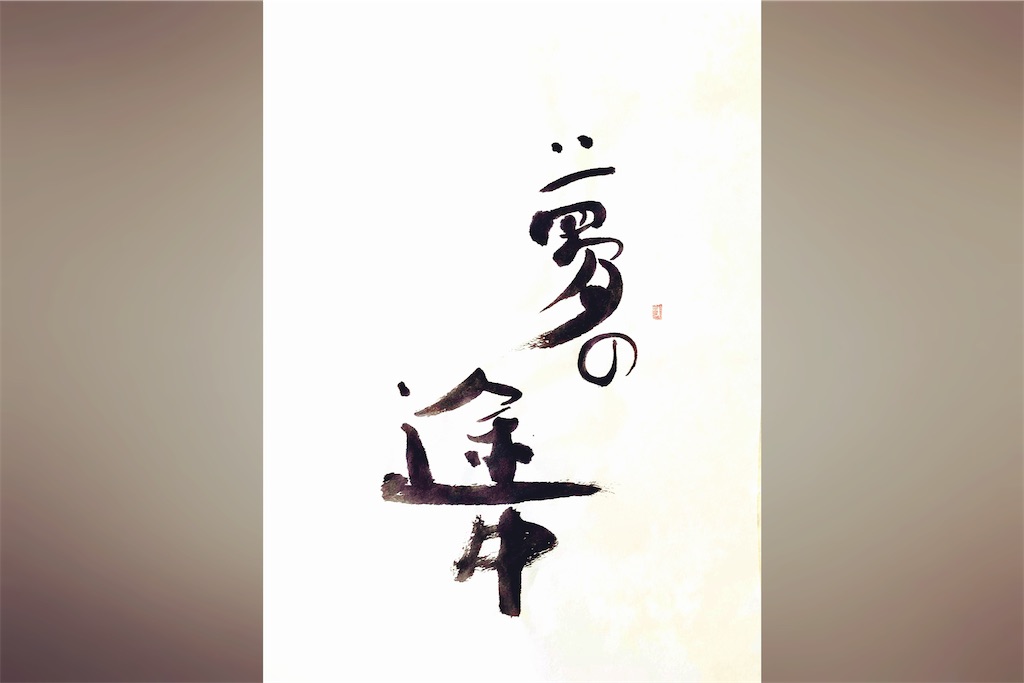 夢の
途中